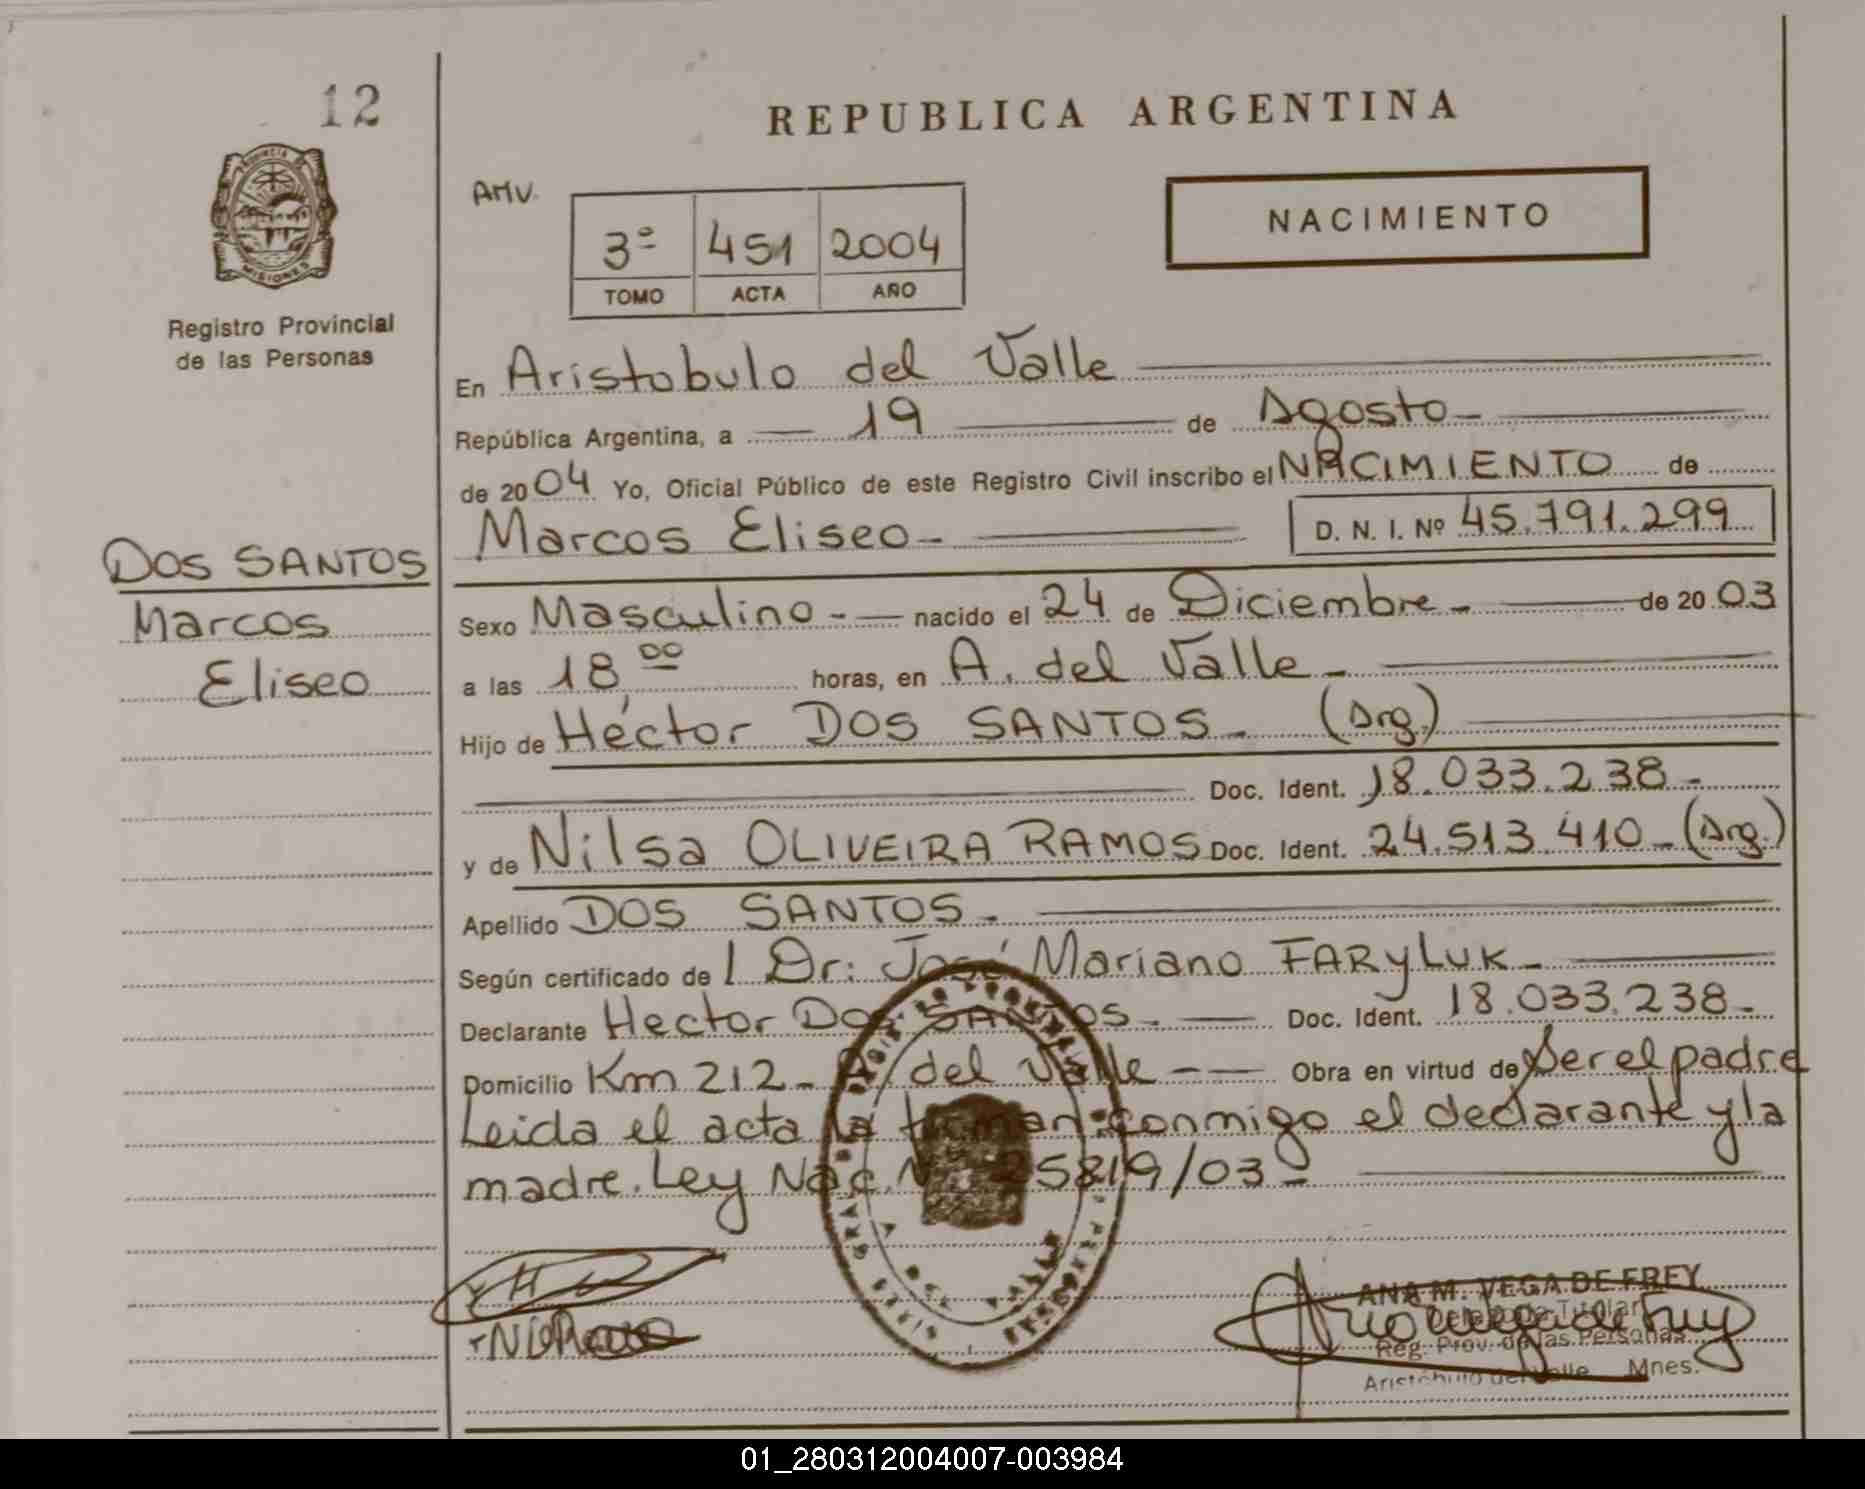 12
REPUBLICA ARGENTINA
AMV.
3º 451 2004
TOMO ACTA AÑO
NACIMIENTO
PROVINCIA DE
MISIONES
Registro Provincial
de las Personas
En Aristobulo del Valle
República Argentina, a 19 de Agosto
de 2004 Yo, Oficial Público de este Registro Civil inscribo el NACIMIENTO de
Marcos Eliseo D. N. I. Nº 45.791.299
DOS SANTOS
Marcos
Eliseo
Sexo Masculino nacido el 24 de Diciembre de 2003
a las 18,00 horas, en A. del Valle
Hijo de Héctor DOS SANTOS (Arg.)
Doc. Ident. 18.033.238
y de Nilsa OLIVEIRA RAMOS Doc. Ident. 24.513.410 (Arg.)
Apellido DOS SANTOS
Según certificado de l Dr: José Mariano FARYLUK
Declarante Hector DOS SANTOS Doc. Ident. 18.033.238
Domicilio Km 212 A. del Valle Obra en virtud de Ser el padre
Leida el acta la firman conmigo el declarante y la
madre. Ley Nac. Nº 25819/03
ANA M. VEGA DE FREY
Delegada Titular
Reg. Prov. de las Personas
Aristóbulo del Valle Mnes.
01_280312004007-003984